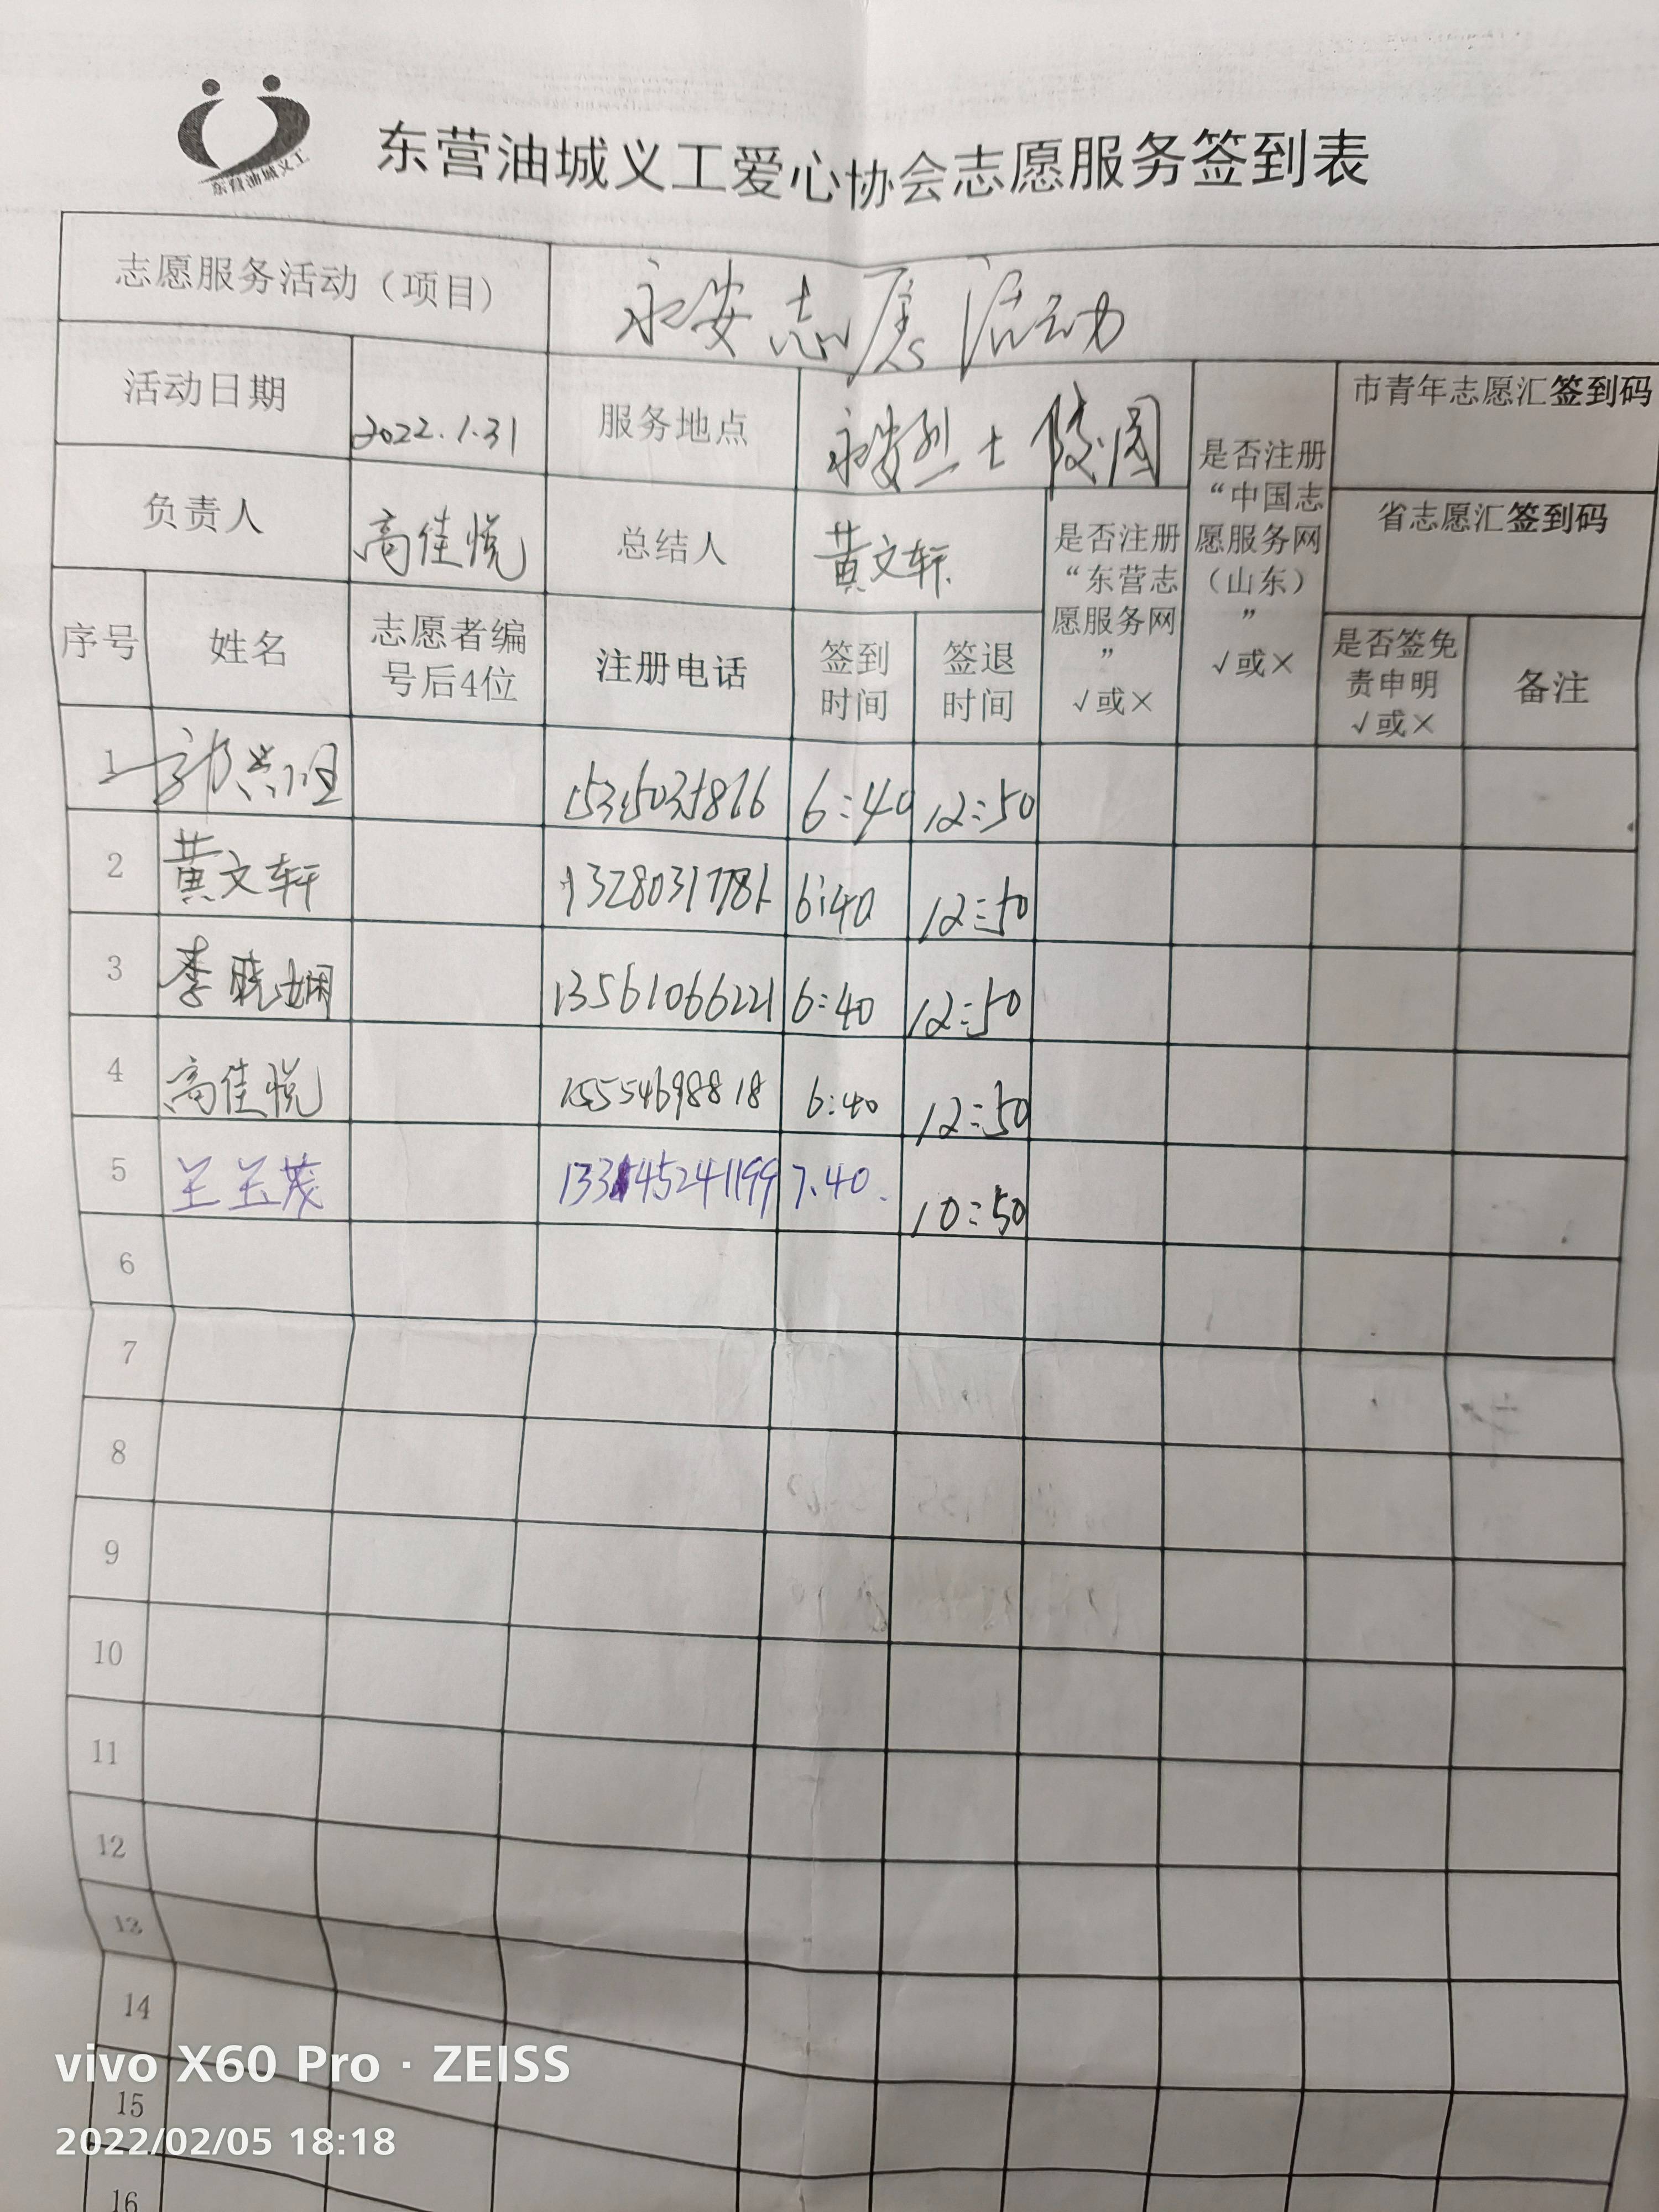 东营油城义工
东营油城义工爱心协会志愿服务签到表
志愿服务活动（项目） 永安志愿活动
活动日期 2022.1.31 服务地点 永安烈士陵园 是否注册“中国志愿服务网（山东）” √或× 市青年志愿汇签到码
负责人 高佳悦 总结人 黄文轩 是否注册“东营志愿服务网” √或× 省志愿汇签到码
序号 姓名 志愿者编号后4位 注册电话 签到时间 签退时间 是否签免责申明 √或× 备注
1 6:40 12:50
2 黄文轩 6:40 12:50
3 李晓娴 13561066221 6:40 12:50
4 高佳悦 15554698818 6:40 12:50
5 王玉茂 7.40. 10:50
6
7
8
9
10
11
12
13
14
15
16
vivo X60 Pro · ZEISS
2022/02/05 18:18